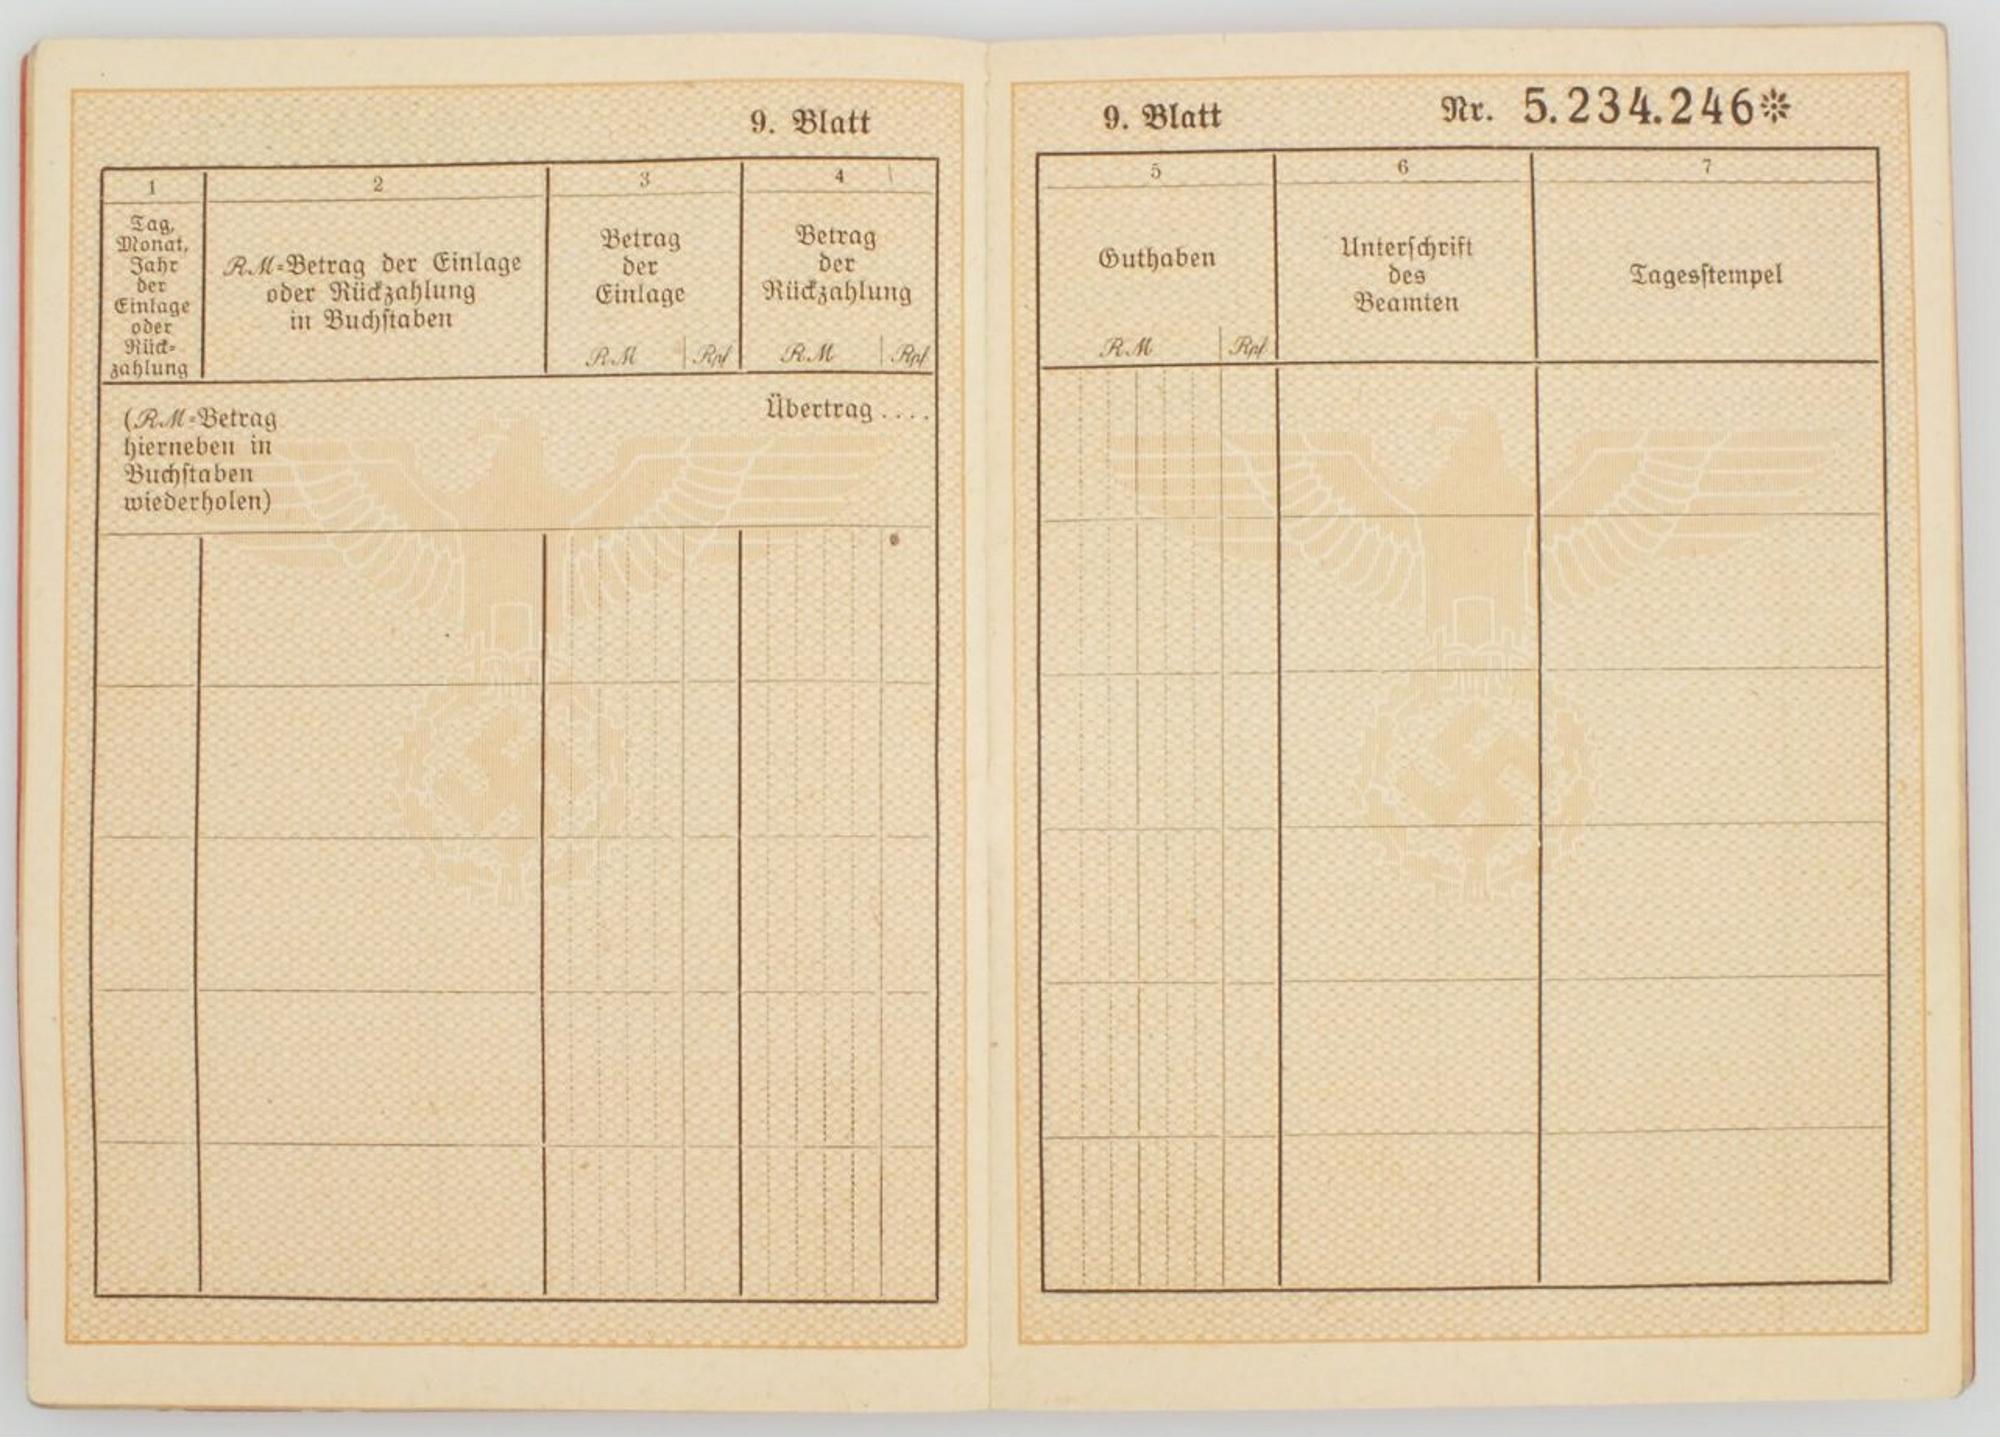 9. Blatt
1
2
3
4
Tag,
Monat,
Jahr
der
Einlage
oder
Rück-
zahlung
RM-Betrag der Einlage
oder Rückzahlung
in Buchstaben
Betrag
der
Einlage
RM Rpf
Betrag
der
Rückzahlung
RM Rpf
(RM-Betrag
hierneben in
Buchstaben
wiederholen)
Übertrag ....
9. Blatt
Nr. 5.234.246*
5
6
7
Guthaben
RM Rpf
Unterschrift
des
Beamten
Tagesstempel